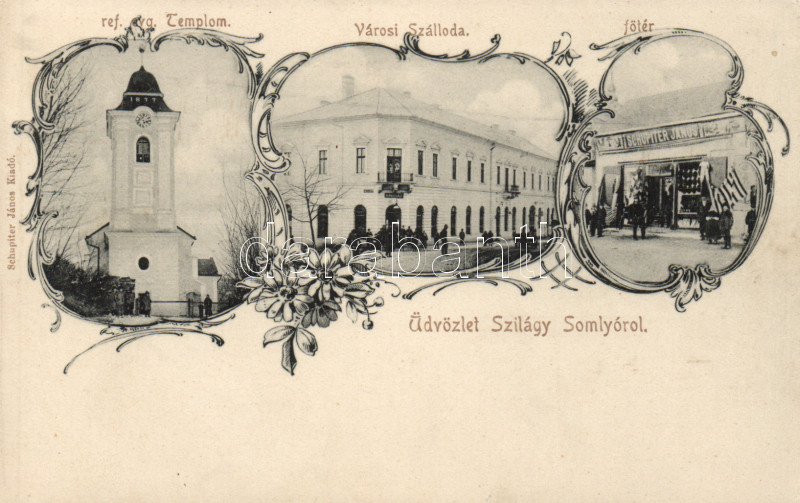 ref. evg. Templom.
Városi Szálloda.
főtér
SCHUPITER JÁNOS
Schupiter János Kiadó.
darabanth
Üdvözlet Szilágy Somlyóról.